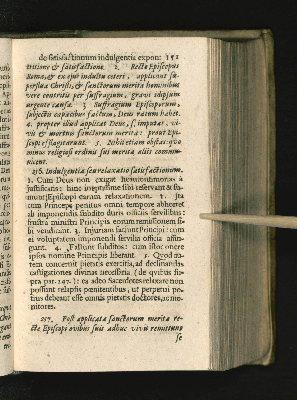 de satisfactionum indulgentiis expon: 151
tritione & satisfactione. 2. Recte Episcopus
Romæ, & ex ejus indultu ceteri, applicant su-
perflua Christi, & sanctorum merita hominibus
vere contritis per suffragium, gravi idque
urgente causa. 3 Suffragium Episcoporum,
subjectis capacibus factum, Deus ratum habet.
4. propter illud applicat Deus, imputat vi-
vis & mortuis sanctorum merita: prout Epi-
scopi efflagitarunt. 5. Nihil etiam obstat quo
minus religiosi ordines sua merita aliis commu-
nicent.
216. Indulgentia seu relaxatio satisfactionum.
1. Cum Deus non exigat hominis
justificatis: hinc ineptissime sibi reservant & sta-
tuunt Episcopi earum relaxationem. 2. Ita
cum Principe penitus omni tempore abhorret
ab imponendis subdito duris officiis servilibus:
frustra ministri Principis eorum remissionem si-
bi vendicant. 3. Injuriam faciunt Principi: cum
ei voluptatem imponendi servilia officia affin-
gunt. 4. Fallunt subditos: cum istos onere
ipso nomine Principis liberant. 5. Quod au-
tem concernit pietatis exercitia, ad declinandas
castigationes divinas necessaria (de quibus su-
pra par. 207.): ea adeo Sacerdotes relaxare non
possunt relapsis penitentibus, ut perpetui po-
tius debeant esse omnis pietatis doctores, ac mo-
nitores.
217. Post applicata sanctorum merita re-
cte Episcopi ovibus suis adhuc vivis remittunt
se